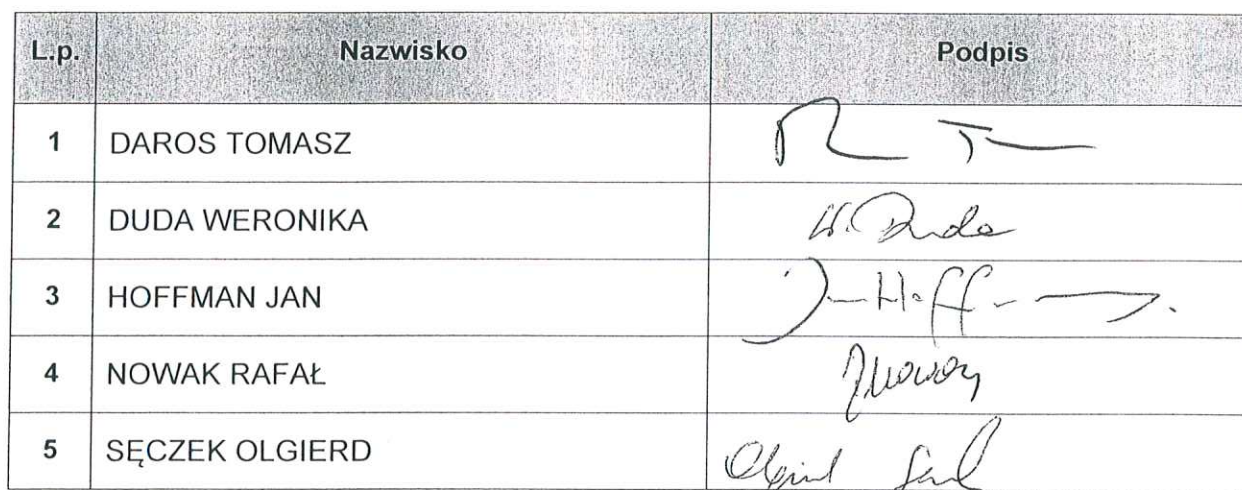 L.p. Nazwisko Podpis
1 DAROS TOMASZ
2 DUDA WERONIKA W. Duda
3 HOFFMAN JAN Jan Hoff
4 NOWAK RAFAŁ
5 SĘCZEK OLGIERD